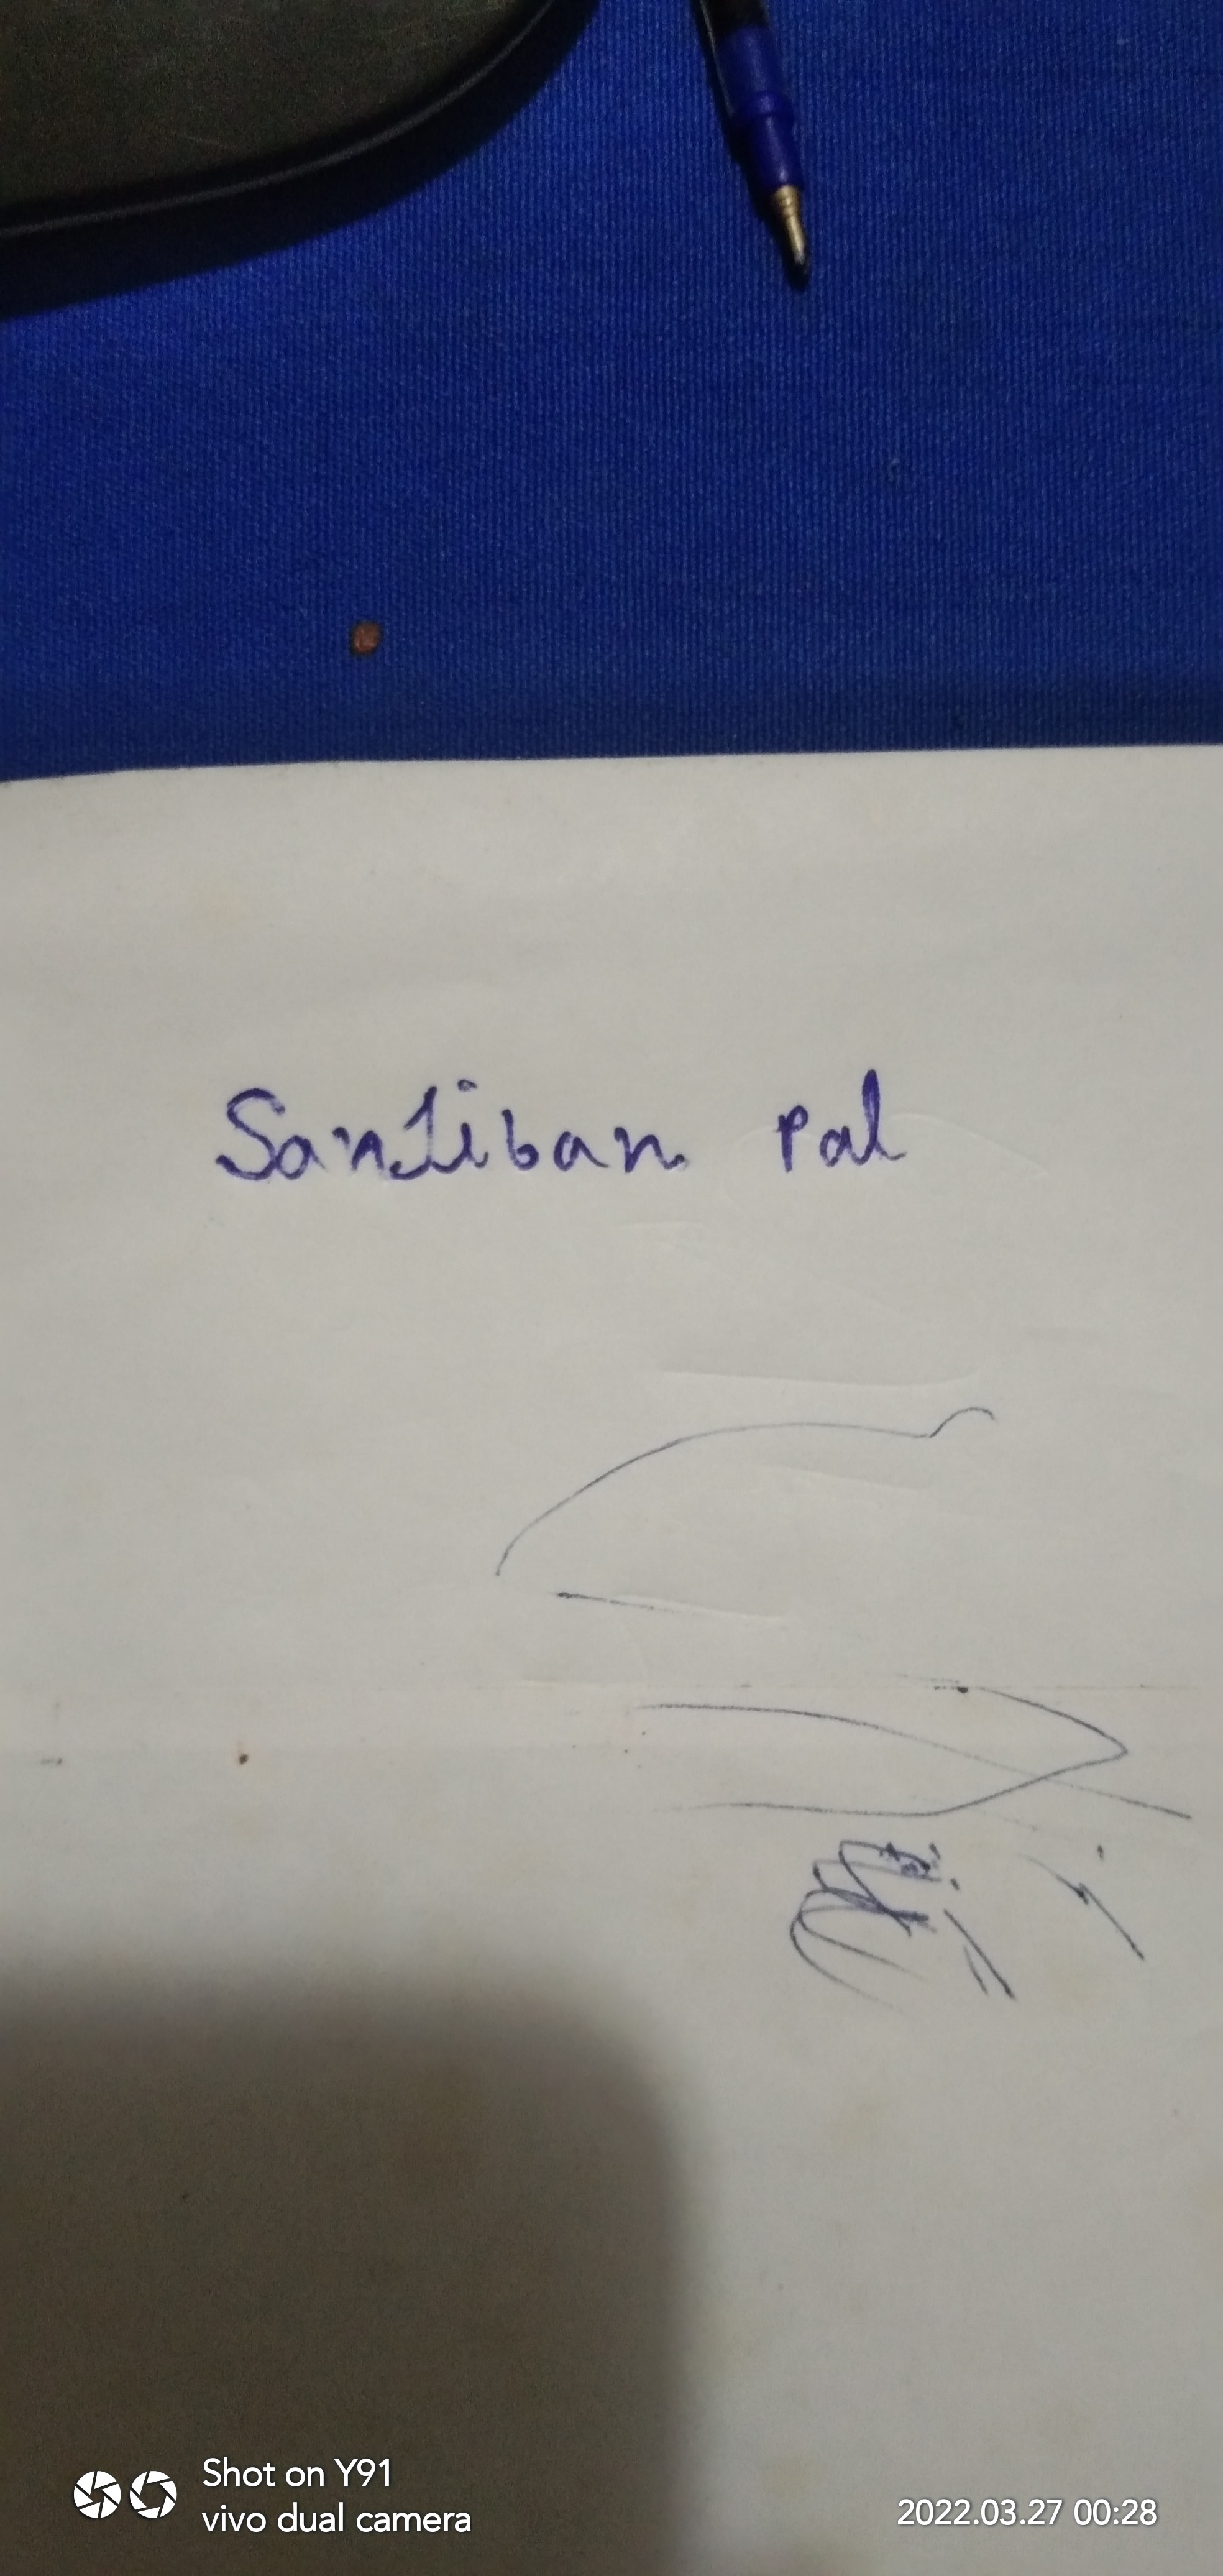 SanJiban Pal
Shot on Y91
vivo dual camera
2022.03.27 00:28